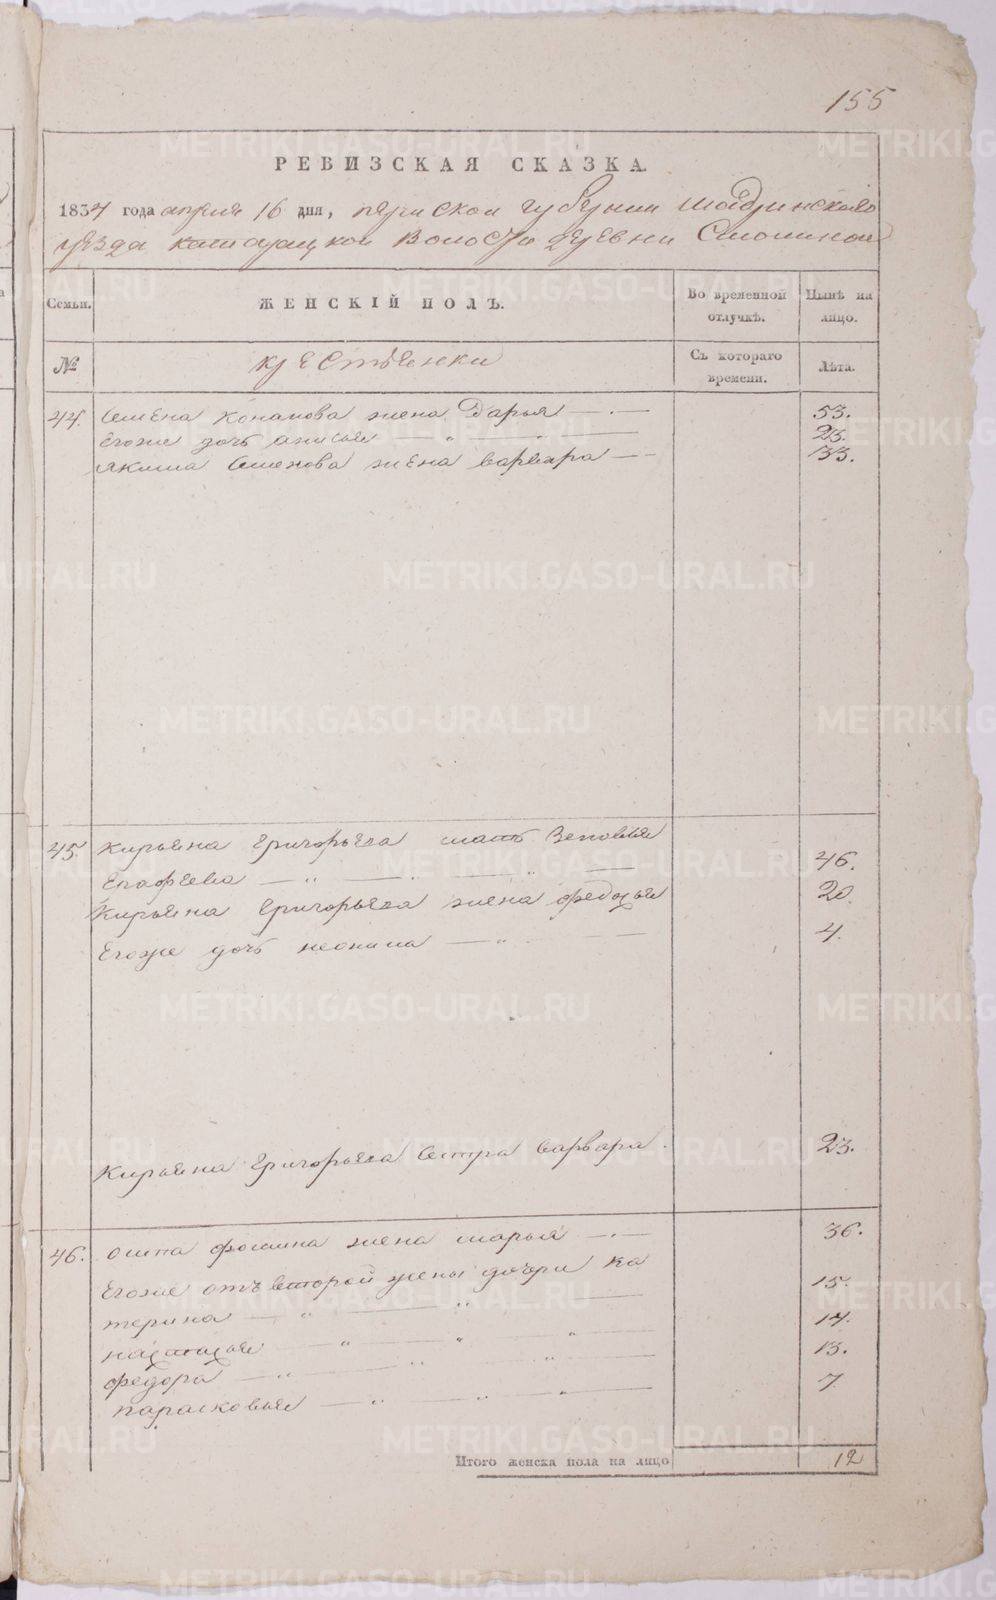 155
РЕВИЗСКАЯ СКАЗКА.
1834 года апреля 16 дня, пермской губернии шадринского
уезда волости деревни
Семьи. ЖЕНСКІЙ ПОЛЪ. Во временной отлучкѣ. Нынѣ на лицо.
№ крестьянки Съ котораго времени. Лѣта.
44. Семена Конанова жена Дарья 53.
Егоже дочь анисья 23.
Якима Семенова жена варвара 33.
45. Кирьяна Григорьева мать Зеновья
Епафеева 46.
Кирьяна Григорьева жена федосья 20.
Егоже дочь неонила 4.
Кирьяна Григорьева Сестра варвара. 23.
46. осипа фомина жена марья 36.
Егоже отъ второй жены дочери ка
терина 15.
настасья 14.
федора 13.
парасковья 7
Итого женска пола на лицо 12
METRIKI.GASO-URAL.RU